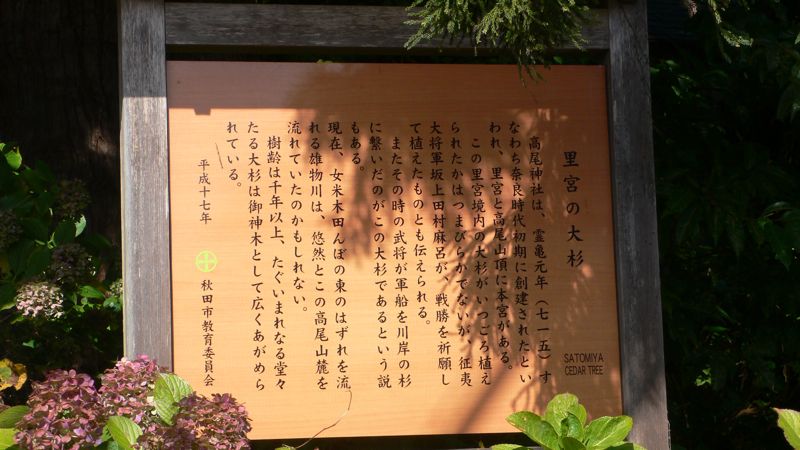 里宮の大杉
SATOMIYA
CEDAR TREE
高尾神社は、霊亀元年（七一五）す
なわち奈良時代初期に創建されたとい
われ、里宮と高尾山頂に本宮がある。
この里宮境内の大杉がいつごろ植え
られたかはつまびらかでないが、征夷
大将軍坂上田村麻呂が、戦勝を祈願し
て植えたものとも伝えられる。
またその時の武将が軍船を川岸の杉
に繋いだのがこの大杉であるという説
もある。
現在、女米木田んぼの東のはずれを流
れる雄物川は、悠然とこの高尾山麓を
流れていたのかもしれない。
樹齢は千年以上、たぐいまれなる堂々
たる大杉は御神木として広くあがめら
れている。
平成十七年
秋田市教育委員会